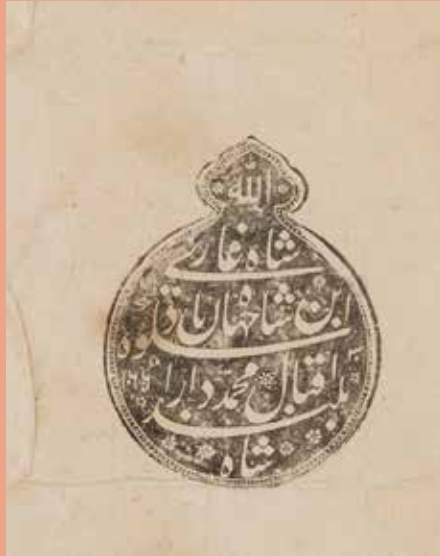 الله
شاه غازی
ابن شاهجهان پادشاه
بلند اقبال محمد دارا
شاه